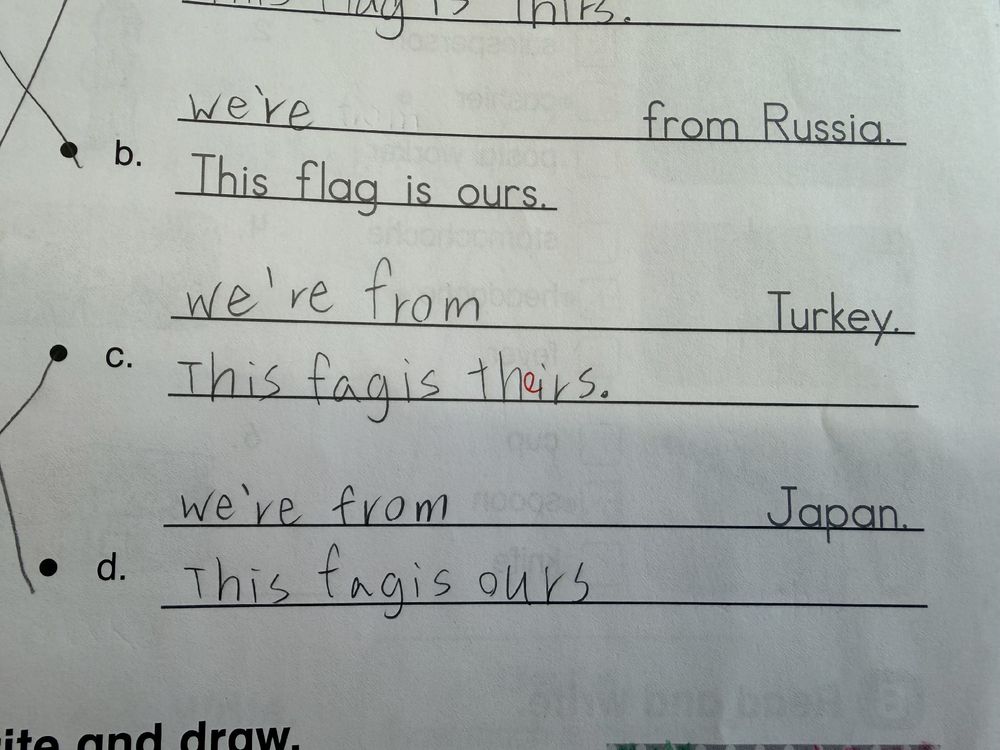 flag is thirs.
we're from Russia.
b. This flag is ours.
we're from Turkey.
c. This fag is theirs.
we're from Japan.
d. This fag is ours
and draw.